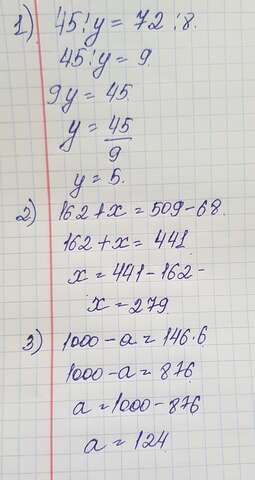 1) 45:y = 72:8.
45:y = 9
9y = 45.
y = 45/9
y = 5.
2) 162+x = 509-68.
162+x = 441
x = 441-162-
x = 279.
3) 1000-a = 146·6
1000-a = 876
a = 1000-876
a = 124